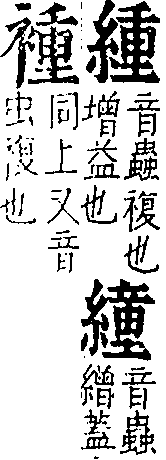 緟
音蟲複也
增益也
褈
同上又音
虫複也
繣
音蟲
繒蓋